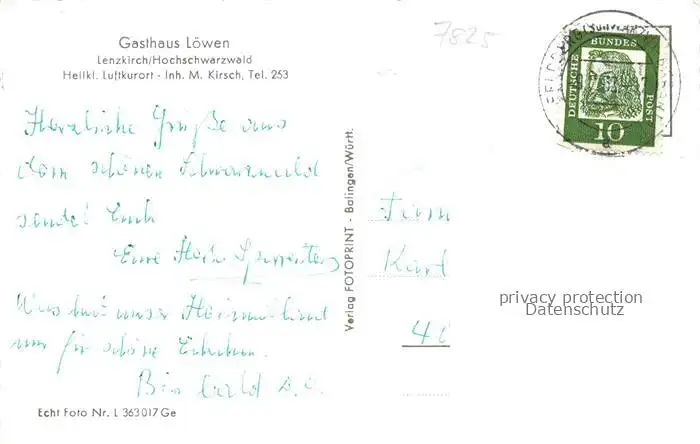 7825
Gasthaus Löwen
Lenzkirch/Hochschwarzwald
Heilkl. Luftkurort - Inh. M. Kirsch, Tel. 253
DEUTSCHE BUNDES POST
10
Herzliche Grüße aus
dem schönen Schwarzwald
sendet Euch
Eure
Was hat unser Heimatland
nur für schöne
Bis bald
Verlag FOTOPRINT - Balingen/Württ.
Karl
privacy protection
Datenschutz
Echt Foto Nr. L 363017 Ge